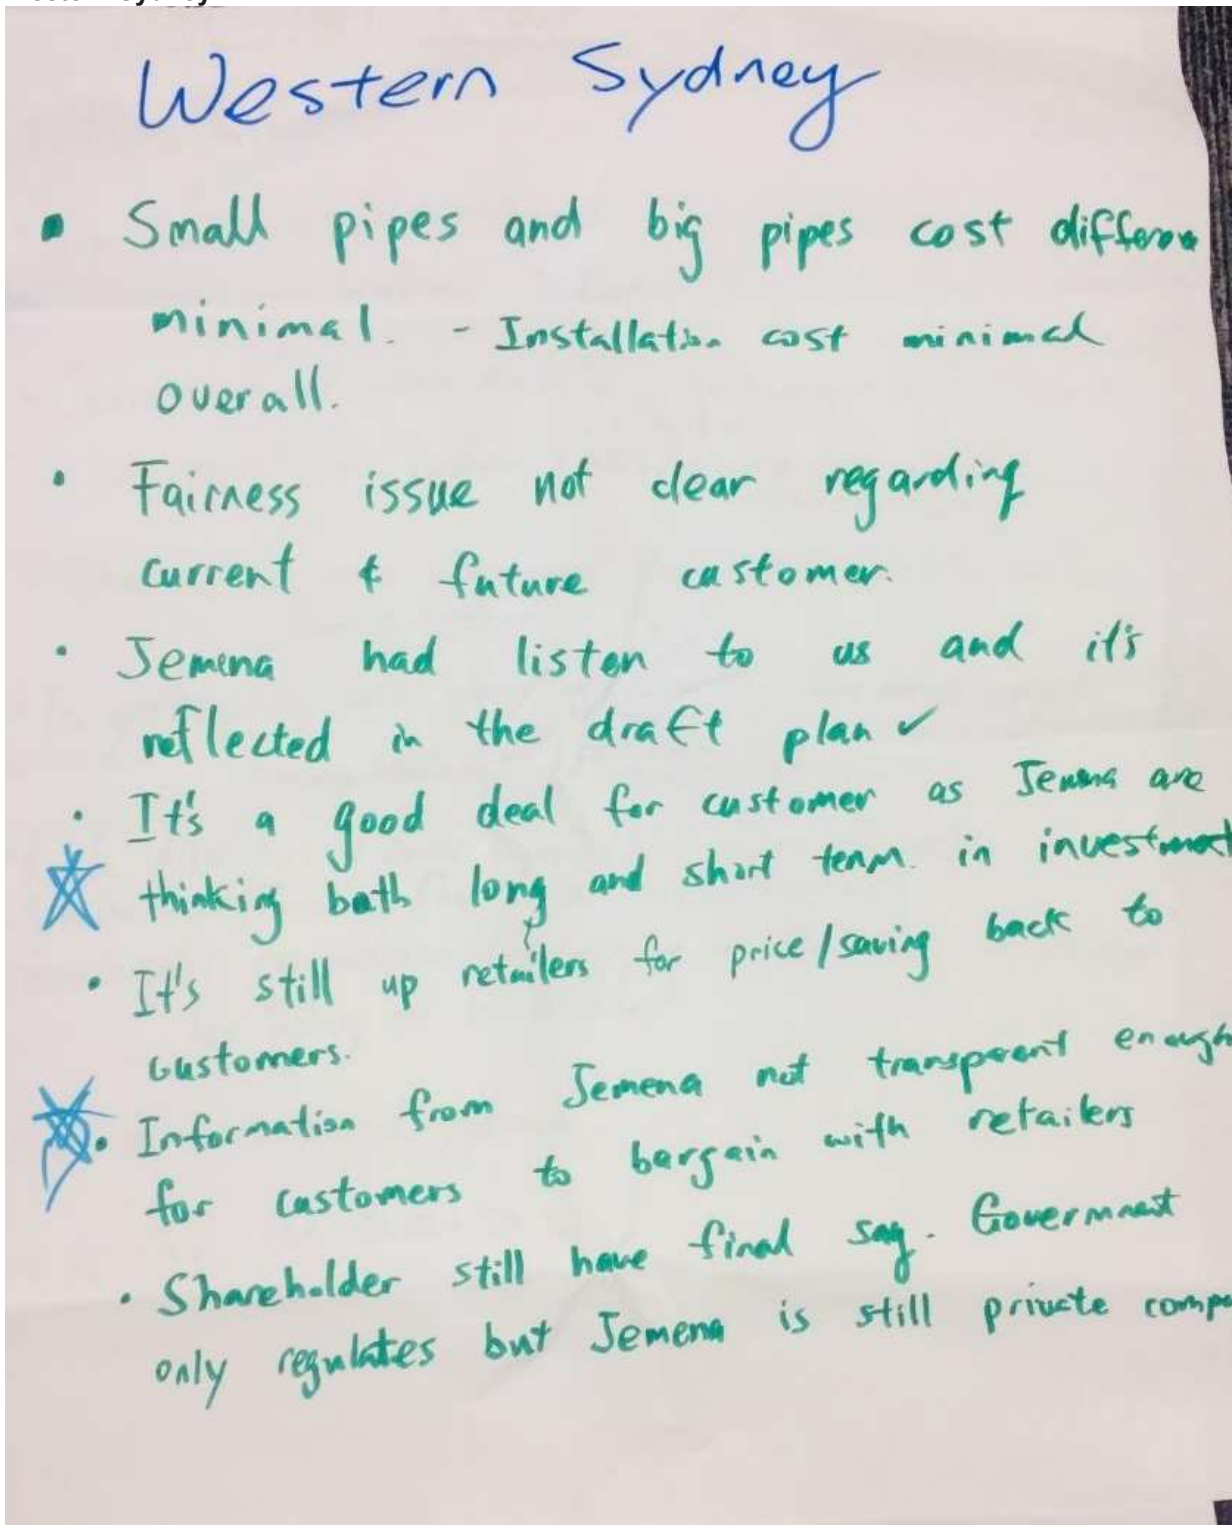 Western Sydney
• Small pipes and big pipes cost
minimal. - Installation cost minimal
overall.
• Fairness issue not clear regarding
current & future customer.
• Jemena had listen to us and it's
reflected in the draft plan ✓
• It's a good deal for customer as Jemena are
thinking both long and short term. in investment
• It's still up retailers for price/saving back to
customers.
• Information from Jemena not transparent enough
for customers to bargain with retailers
• Shareholder still have final say. Government
only regulates but Jemena is still private